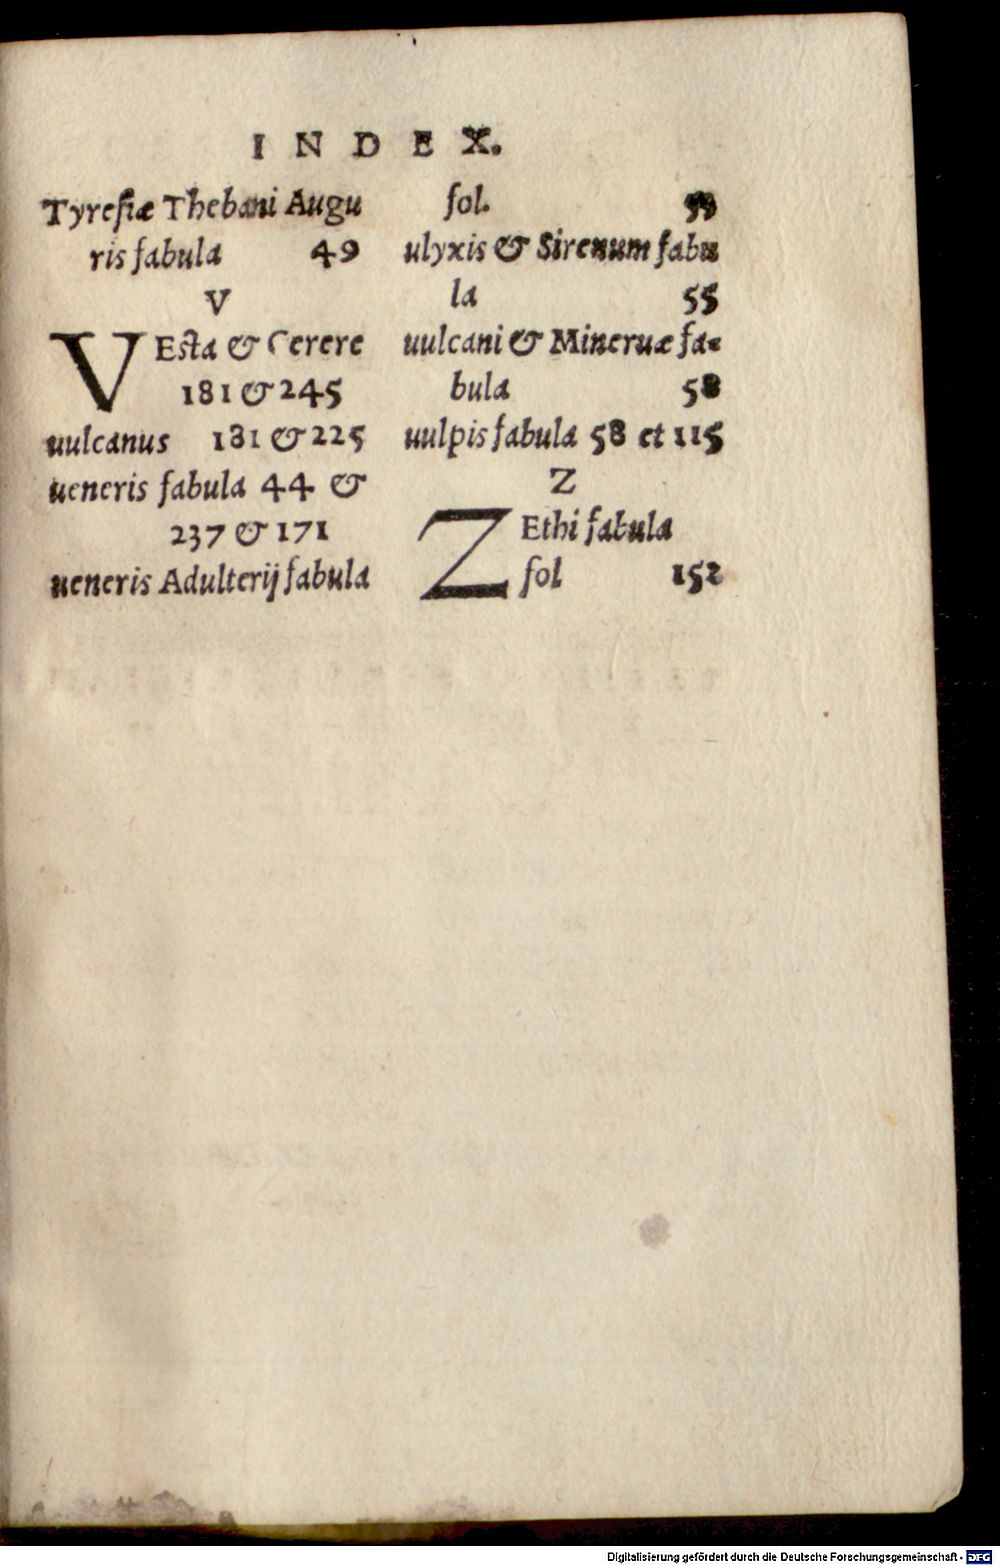 INDEX.
Tyresiæ Thebani Augu
ris fabula 49
V
VEsta & Cerere
181 & 245
uulcanus 181 & 225
ueneris fabula 44 &
237 & 171
ueneris Adulterij fabula
fol.
ulyxis & Sirenum fabu
la 55
uulcani & Mineruæ fa-
bula 58
uulpis fabula 58 et 115
Z
ZEthi fabula
fol 152
Digitalisierung gefördert durch die Deutsche Forschungsgemeinschaft - DFG